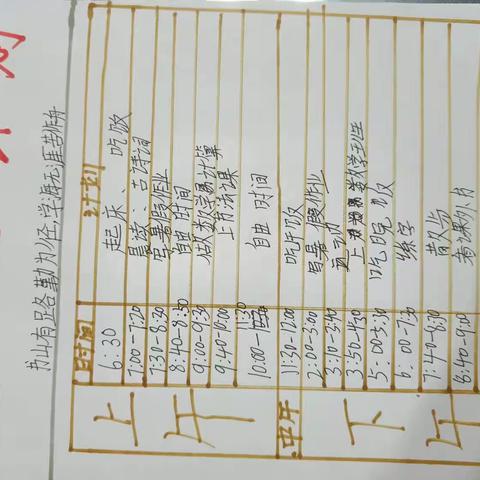 书山有路勤为径,学海无涯苦作舟
时间 计划
上午
6:30 起床、吃饭
7:00-7:20 晨读:古诗词
7:30-8:30 写暑假作业
8:40-8:50 自由时间
9:00-9:30 做数学计算
9:40-10:00 上书法课
10:00-11:30 自由时间
中午
11:30-12:00 吃午饭
下午
2:00-3:00 写暑假作业
3:10-3:40 运动
3:50-4:50 上数学班
5:00-5:30 吃晚饭
6:00-7:30 练字
7:40-8:30 散步
8:40-9:10 看课外书